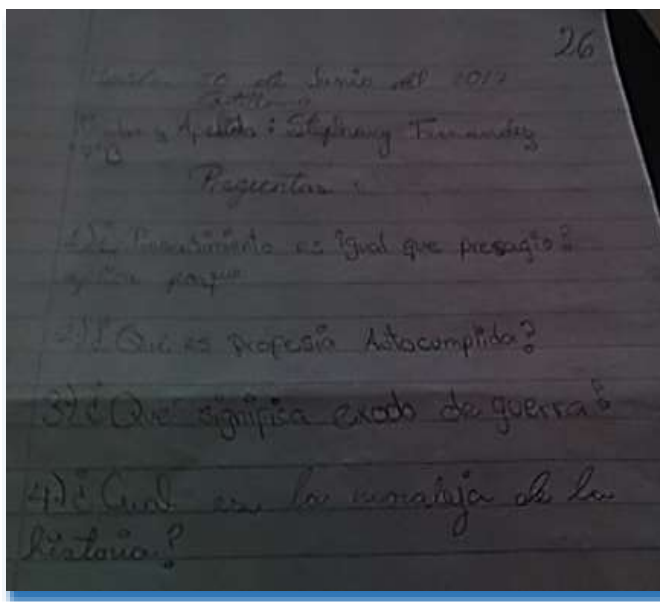 26
de Junio del
y Apellido: Stephany Fernandez
Preguntas:
1) ¿ Presentimiento es igual que presagio?
porque
2) ¿Que es Profesia Autocumplida?
3) ¿Que significa exodo de guerra?
4) ¿Cual es la moraleja de la
historia?